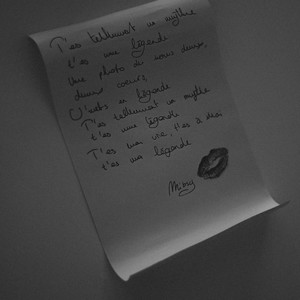 T'es tellement un mythe
t'es une légende
Une photo de nous deux,
deux cœurs
une légende
T'es tellement un mythe
t'es une légende
T'es ma vie, t'es à moi
t'es ma légende